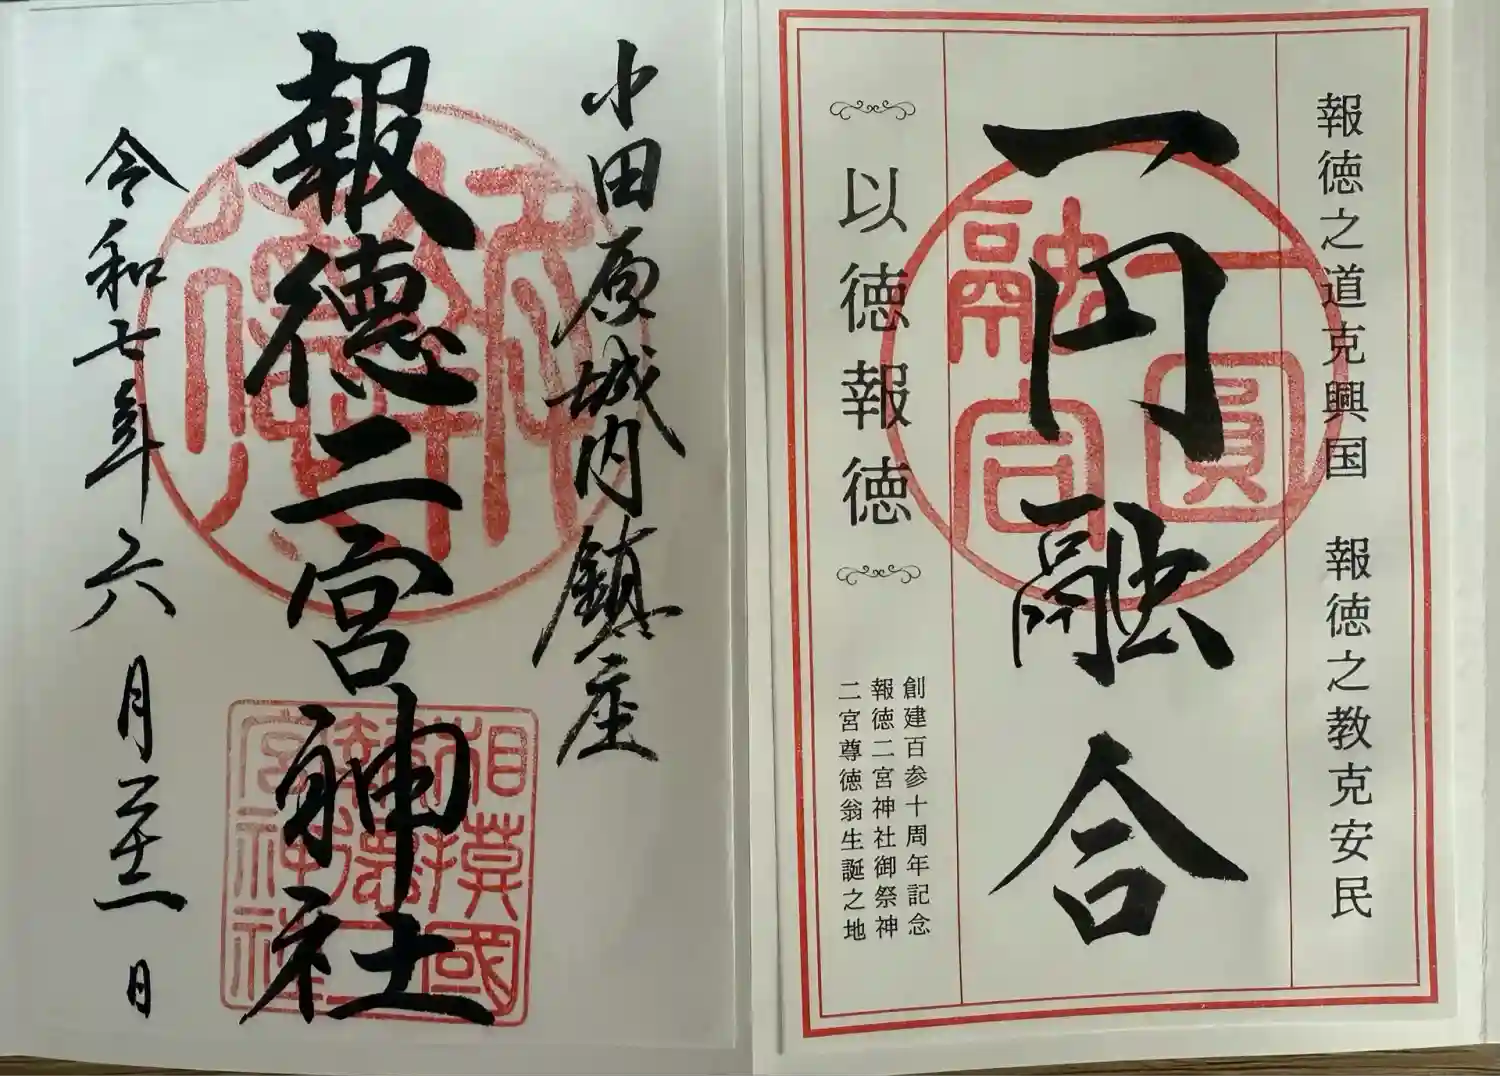 報徳之道克興国　報徳之教克安民
一円融合
一圓
融合
以徳報徳
創建百参十周年記念
報徳二宮神社御祭神
二宮尊徳翁生誕之地
小田原城内鎮座
報徳二宮神社
相模國
報徳二
宮神社
令和七年六月二十一日